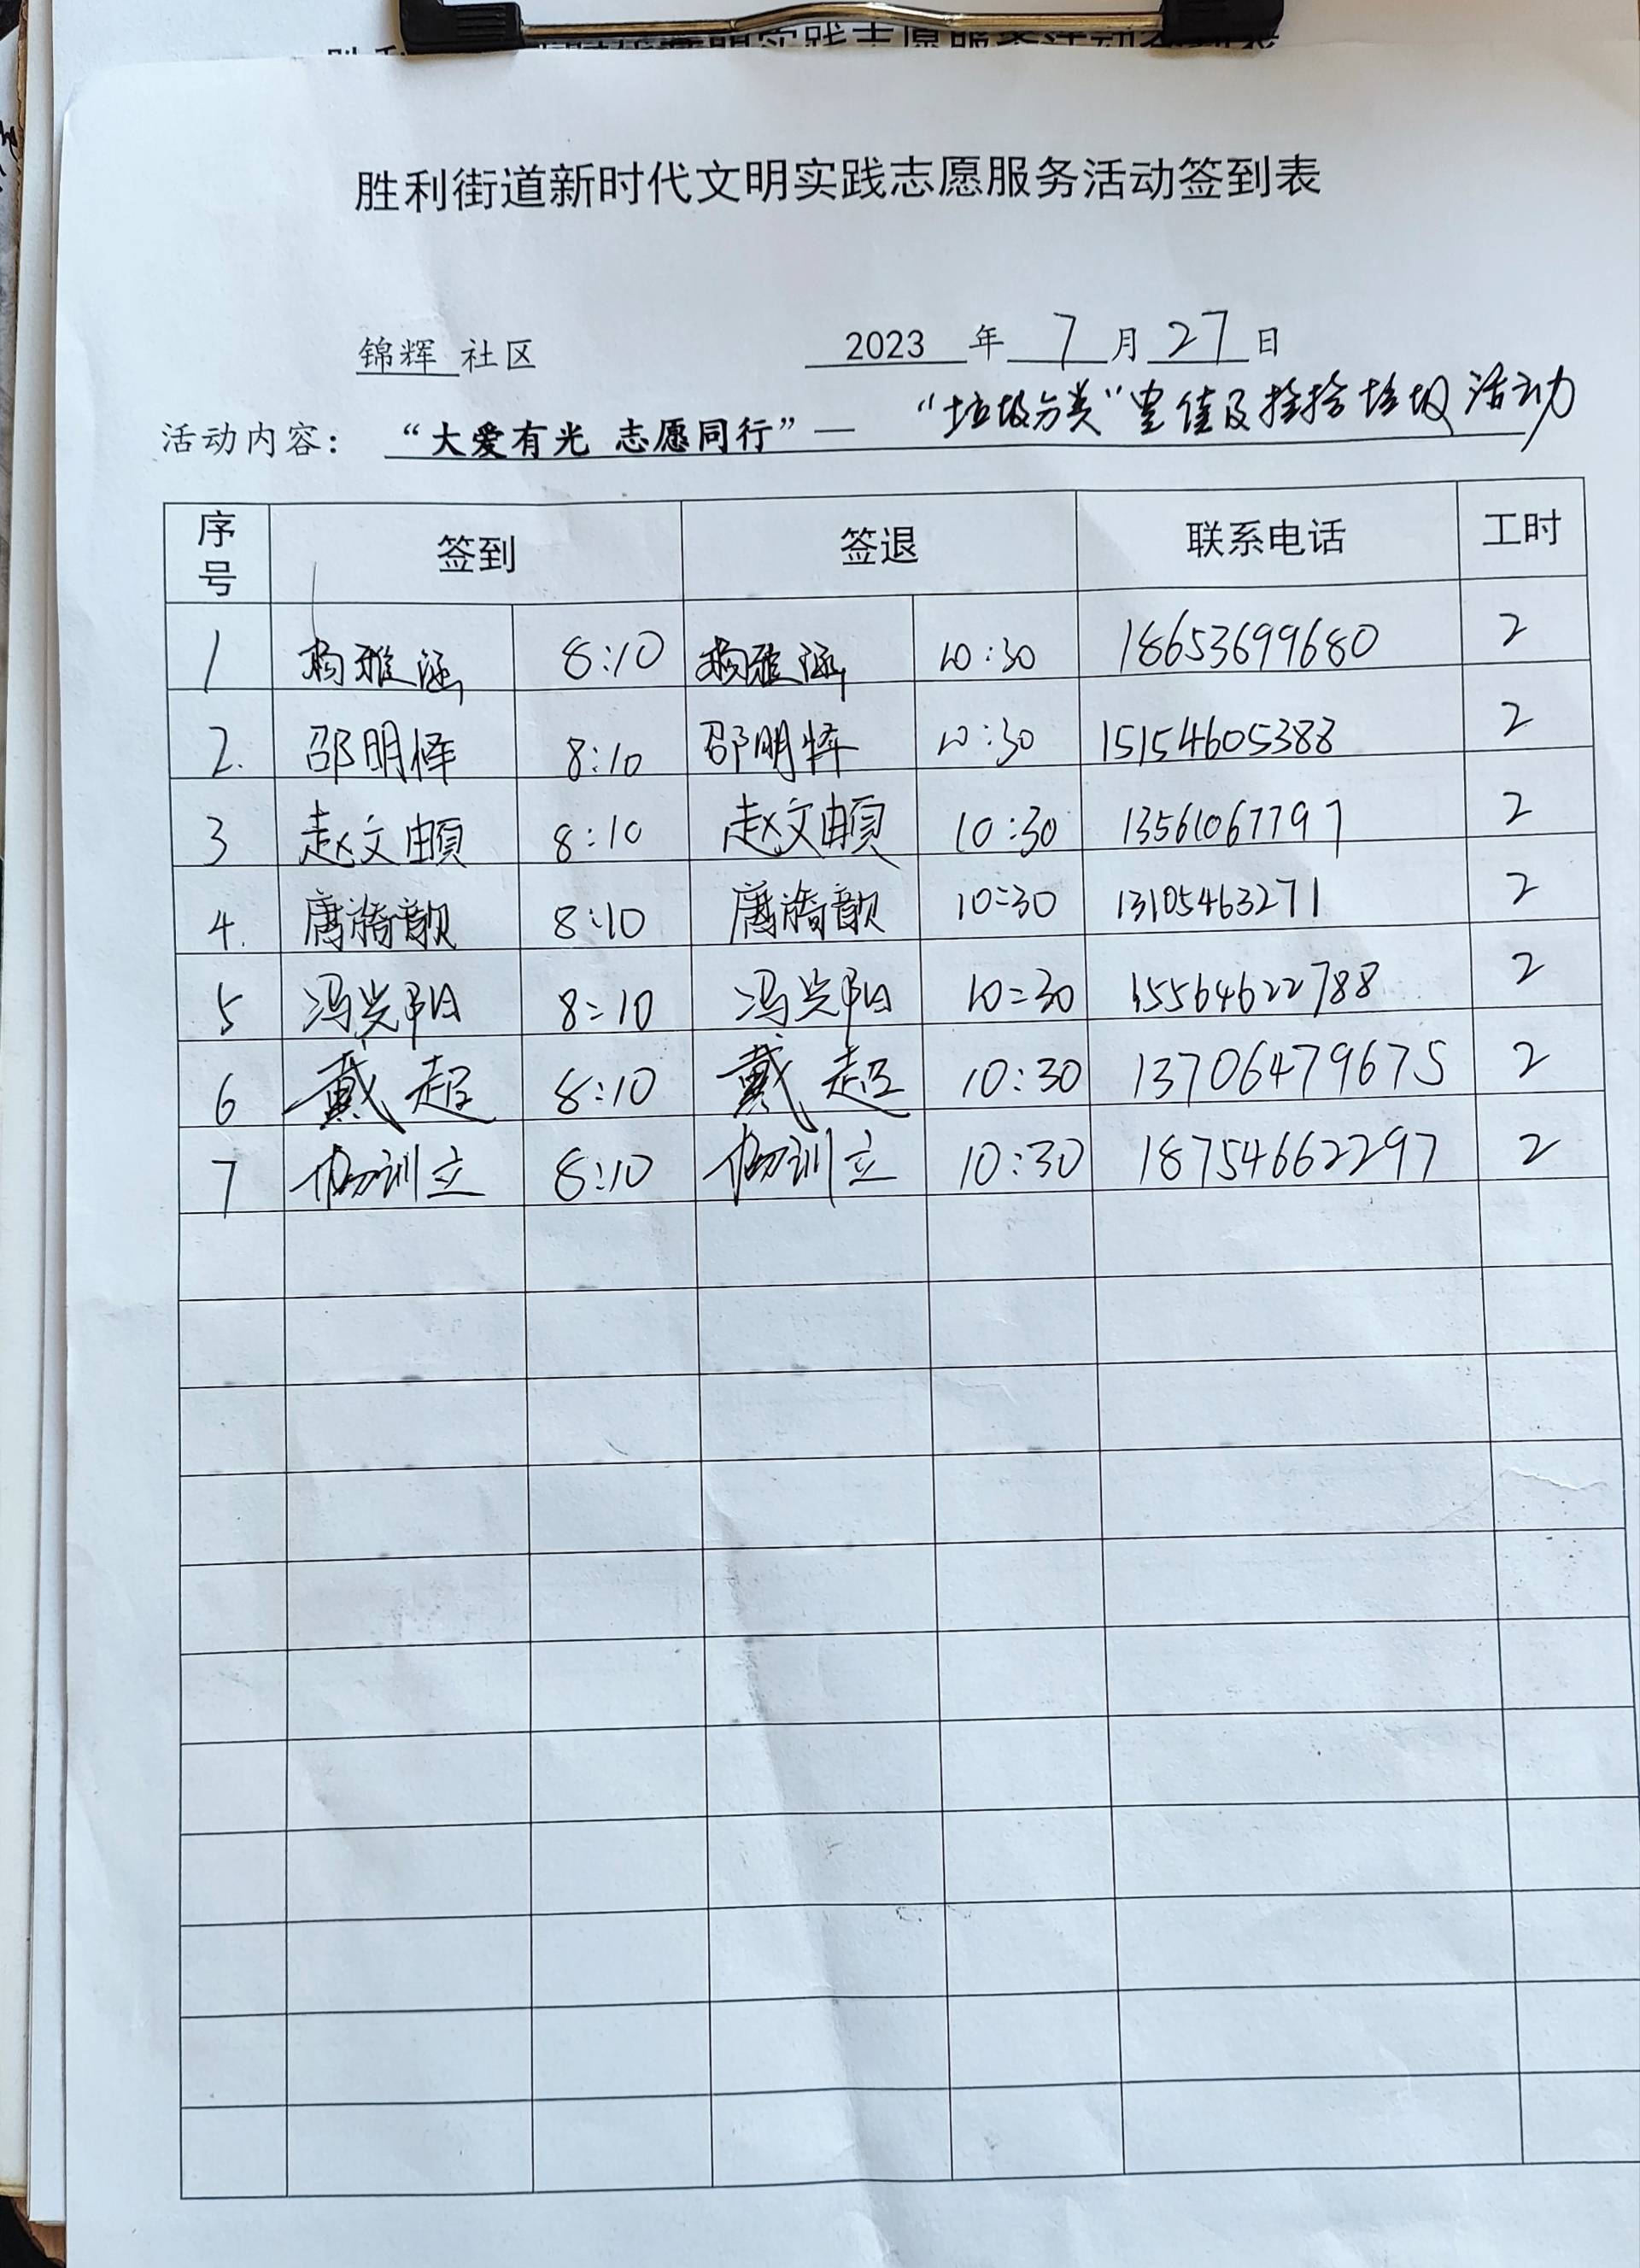 胜利街道新时代文明实践志愿服务活动签到表
锦辉 社区 2023 年 7 月 27 日
活动内容： “大爱有光 志愿同行”— “垃圾分类”宣传及捡拾垃圾活动
序号 签到 签退 联系电话 工时
1 杨雅涵 8:10 杨雅涵 10:30 18653699680 2
2. 邵明怿 8:10 邵明怿 10:30 15154605388 2
3 赵文頔 8:10 赵文頔 10:30 13561067797 2
4. 8:10 10:30 13105463271 2
5 冯兴阳 8:10 冯兴阳 10:30 15564622788 2
6 戴超 8:10 戴超 10:30 13706479675 2
7 杨训立 8:10 杨训立 10:30 18754662297 2